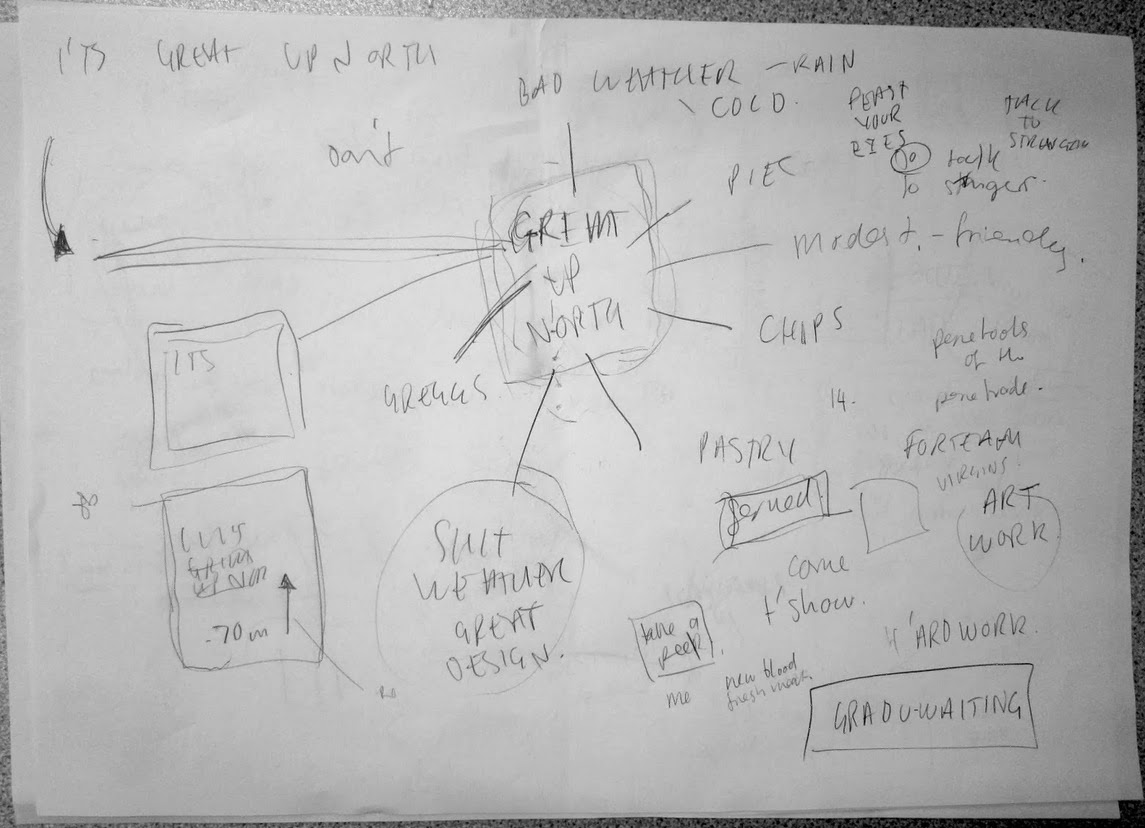 I'TS GREAT UP NORTH
BAD WHEATHER - RAIN
COLD.
FEAST
YOUR
EYES
TALK
TO
STRANGERS
Don't
PIES
Do talk
To stranger.
GRIM
UP
NORTH
Modest, - friendly.
CHIPS
ITS
GREGGS
penetools
of the
penetrade.
14.
PASTRY
FORTEAN
VIRGINS!
ITS
GRIM
UP NOR
-70m
SHIT
WEATHER
GREAT
DESIGN.
ART
WORK
come
t'show.
take a
peek
H'ARDWORK.
me
new blood
fresh meat.
GRADU-WAITING